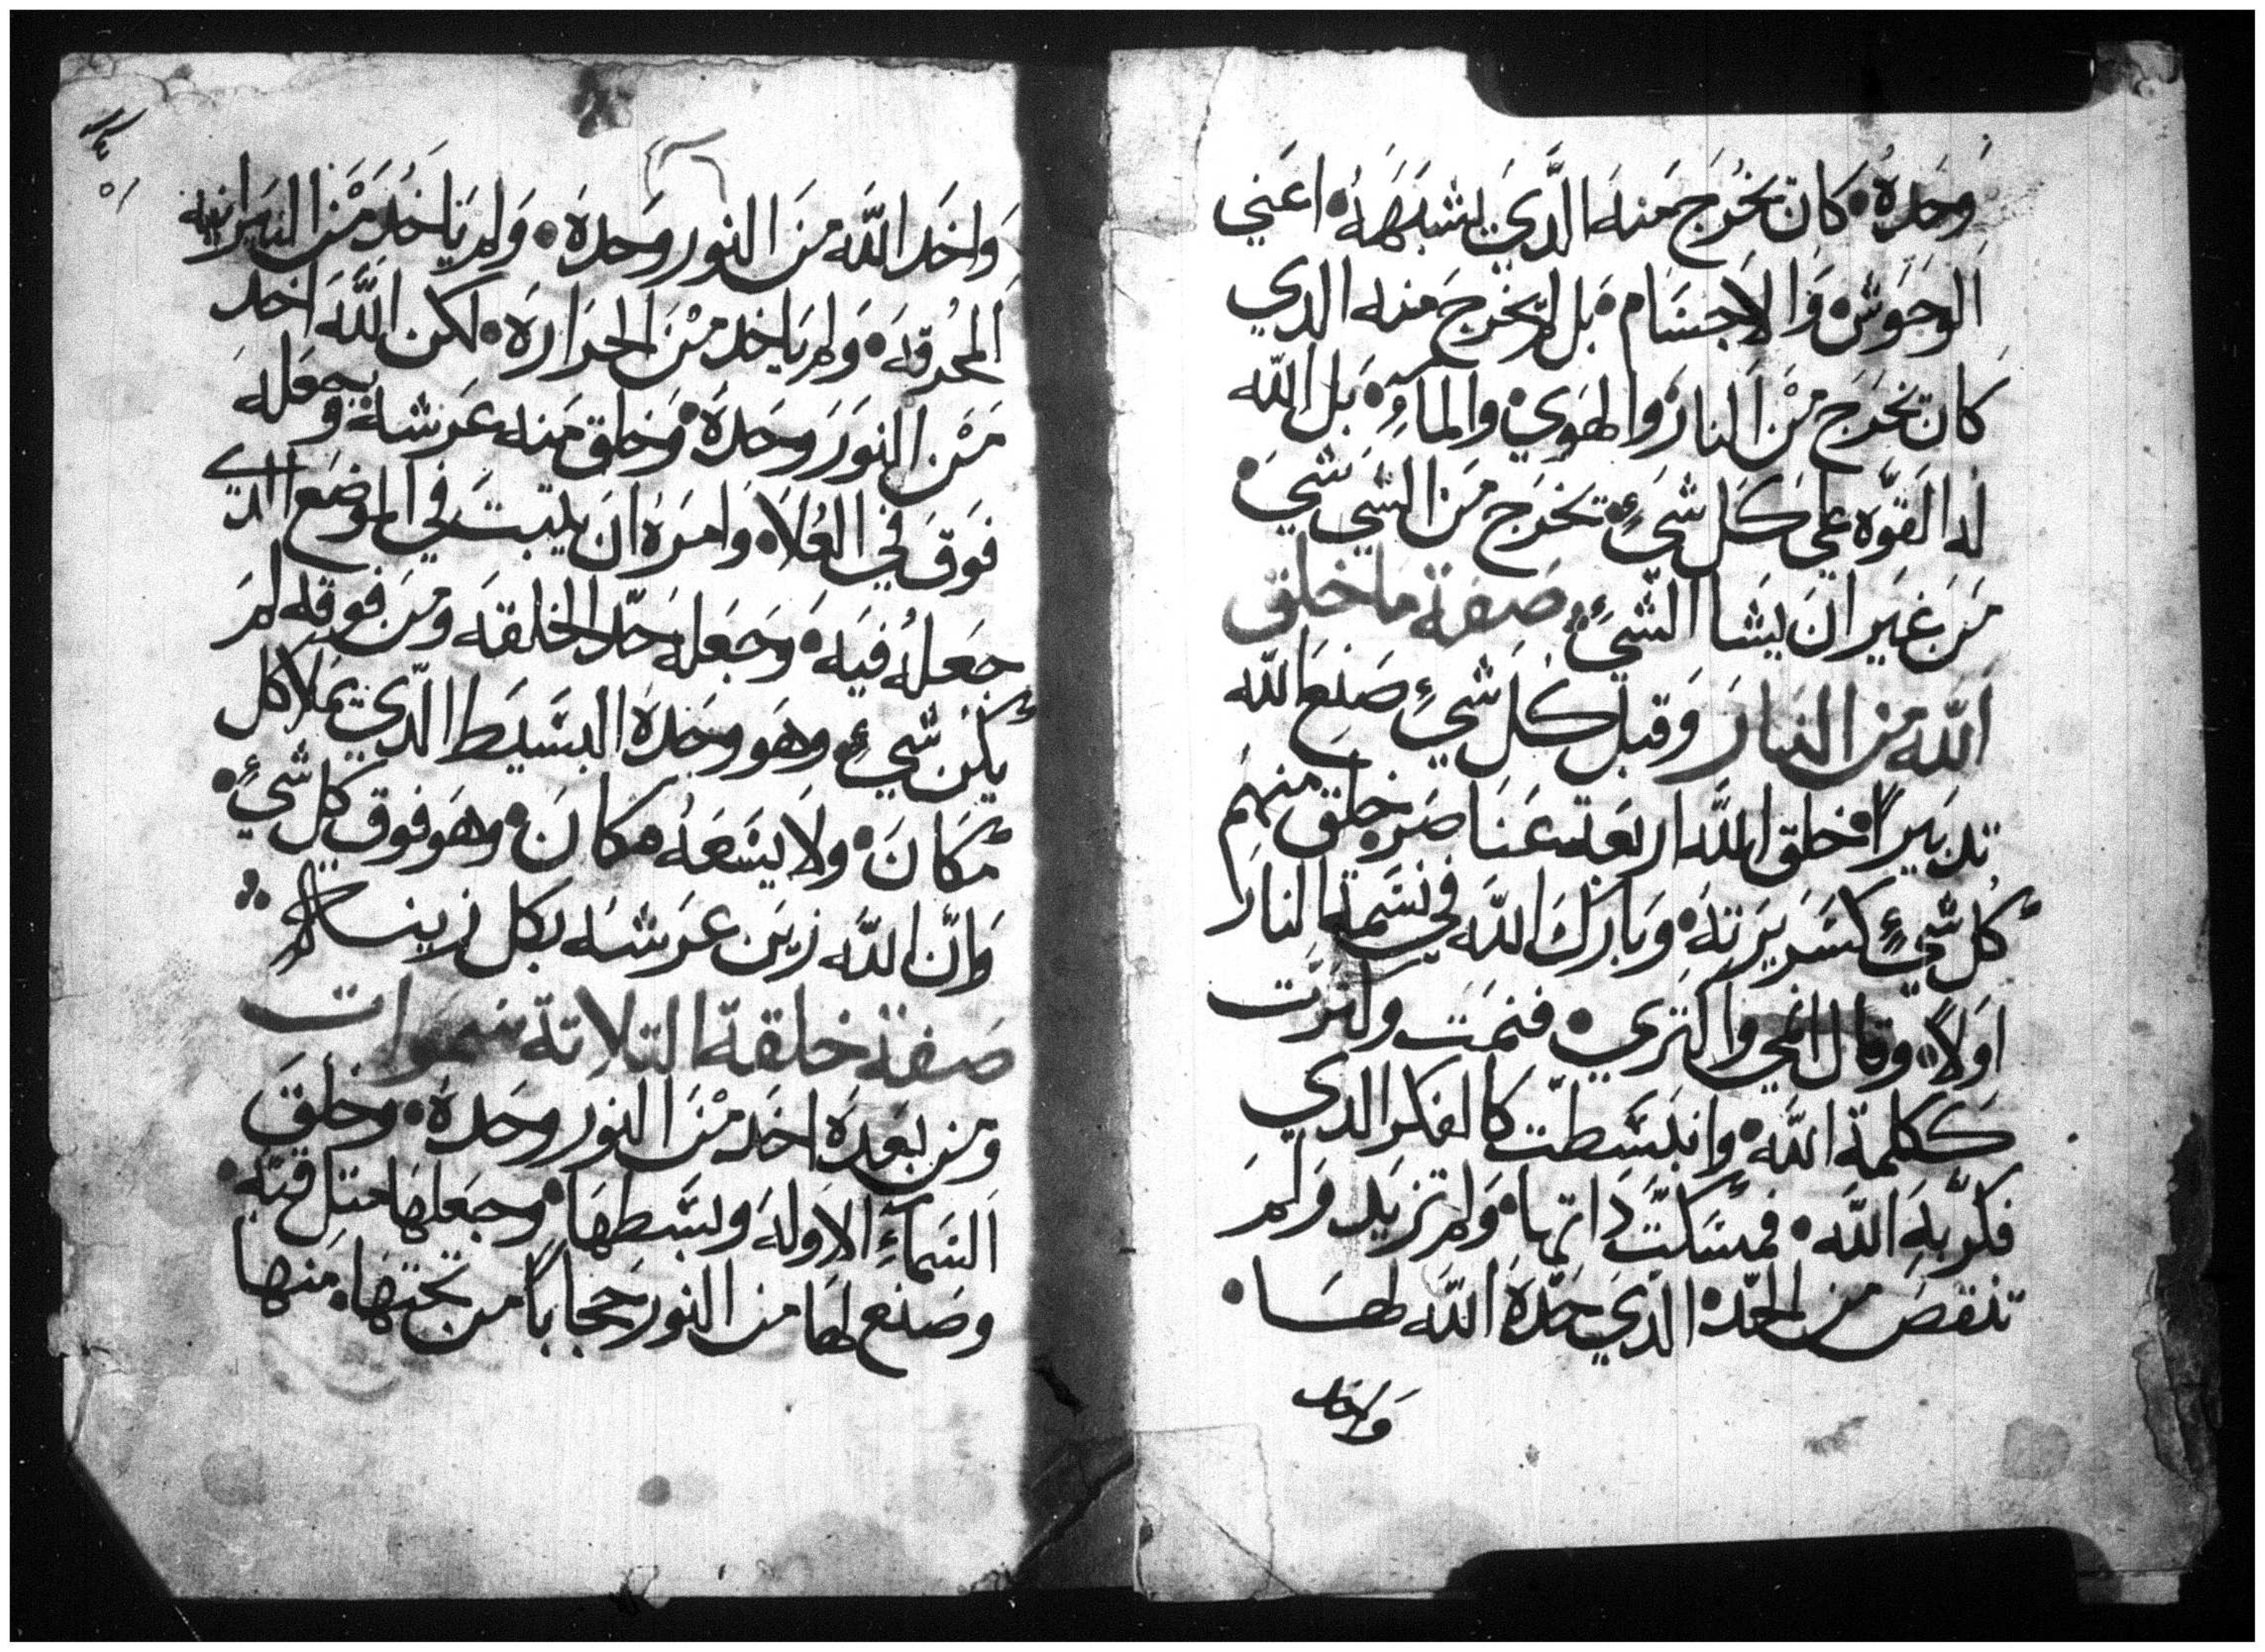 وحده كان تخرج منه الذي يشبهه اعني
الوحوش والاجسام بل لم يخرج منه الدي
كان تخرج من النار والهوي والماء بل الله
له القوه علي كل شيء تخرج من الشي شي
من غير ان يشا الشيء صفة ما خلق
الله من النار وقبل كل شيء صنع الله
تدبيرًا فخلق الله اربعة عناصر خلق منهم
كل شيء كسريرته وبارك الله في نسمة النار
اولاً وقال انمي واكتري فنمت وكترت
ككلمة الله وانبسطت كالفكر الدي
فكر به الله فمسكت داتها ولم تزيد ولم
تنقص من الحد الذي حده الله لها
واخد
واخد الله من النور وحده ولم ياخد من النيرانيه
المحرقه ولم ياخد من الحراره لكن الله اخد
من النور وحده وخلق منه عرشه وجعله
فوق في العلا وامره ان يثبت في الموضع الدي
جعله فيه وجعله حد الخلقه ومن فوقه لم
يكن شيء وهو وحده البسيط الذي يملا كل
مكان ولا يسعه مكان وهو فوق كل شيء
وان الله زين عرشه بكل زينه
صفة خلقة التلاتة سموات
ومن بعده اخد من النور وحده وخلق
السماء الاوله وبسطها وجعلها متل قبه
وصنع لها من النور حجاباً من تحتها منها